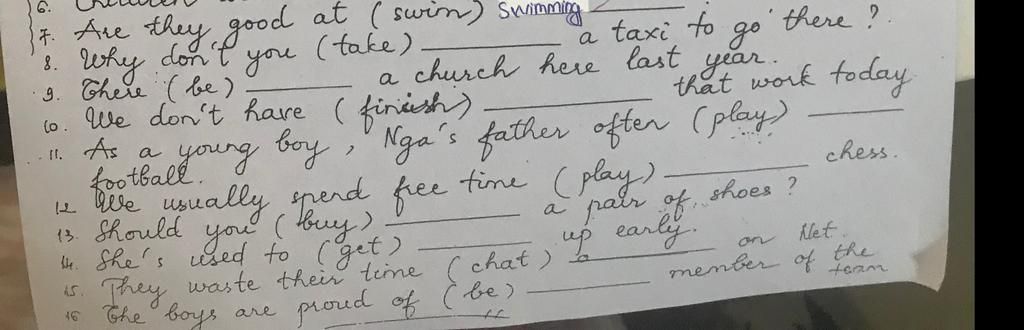 6. Children
7. Are they good at (swim) swimming
8. Why don't you (take) __________ a taxi to go there ?
9. There (be) ________ a church here last year.
10. We don't have (finish) ____________ that work today
11. As a young boy, Nga's father often (play) ________
football.
12 We usually spend free time (play) __________ chess.
13. Should you (buy) __________ a pair of shoes ?
14. She's used to (get) ________ up early.
15. They waste their time (chat) __________ on Net.
16 The boys are proud of (be) __________ member of the
team